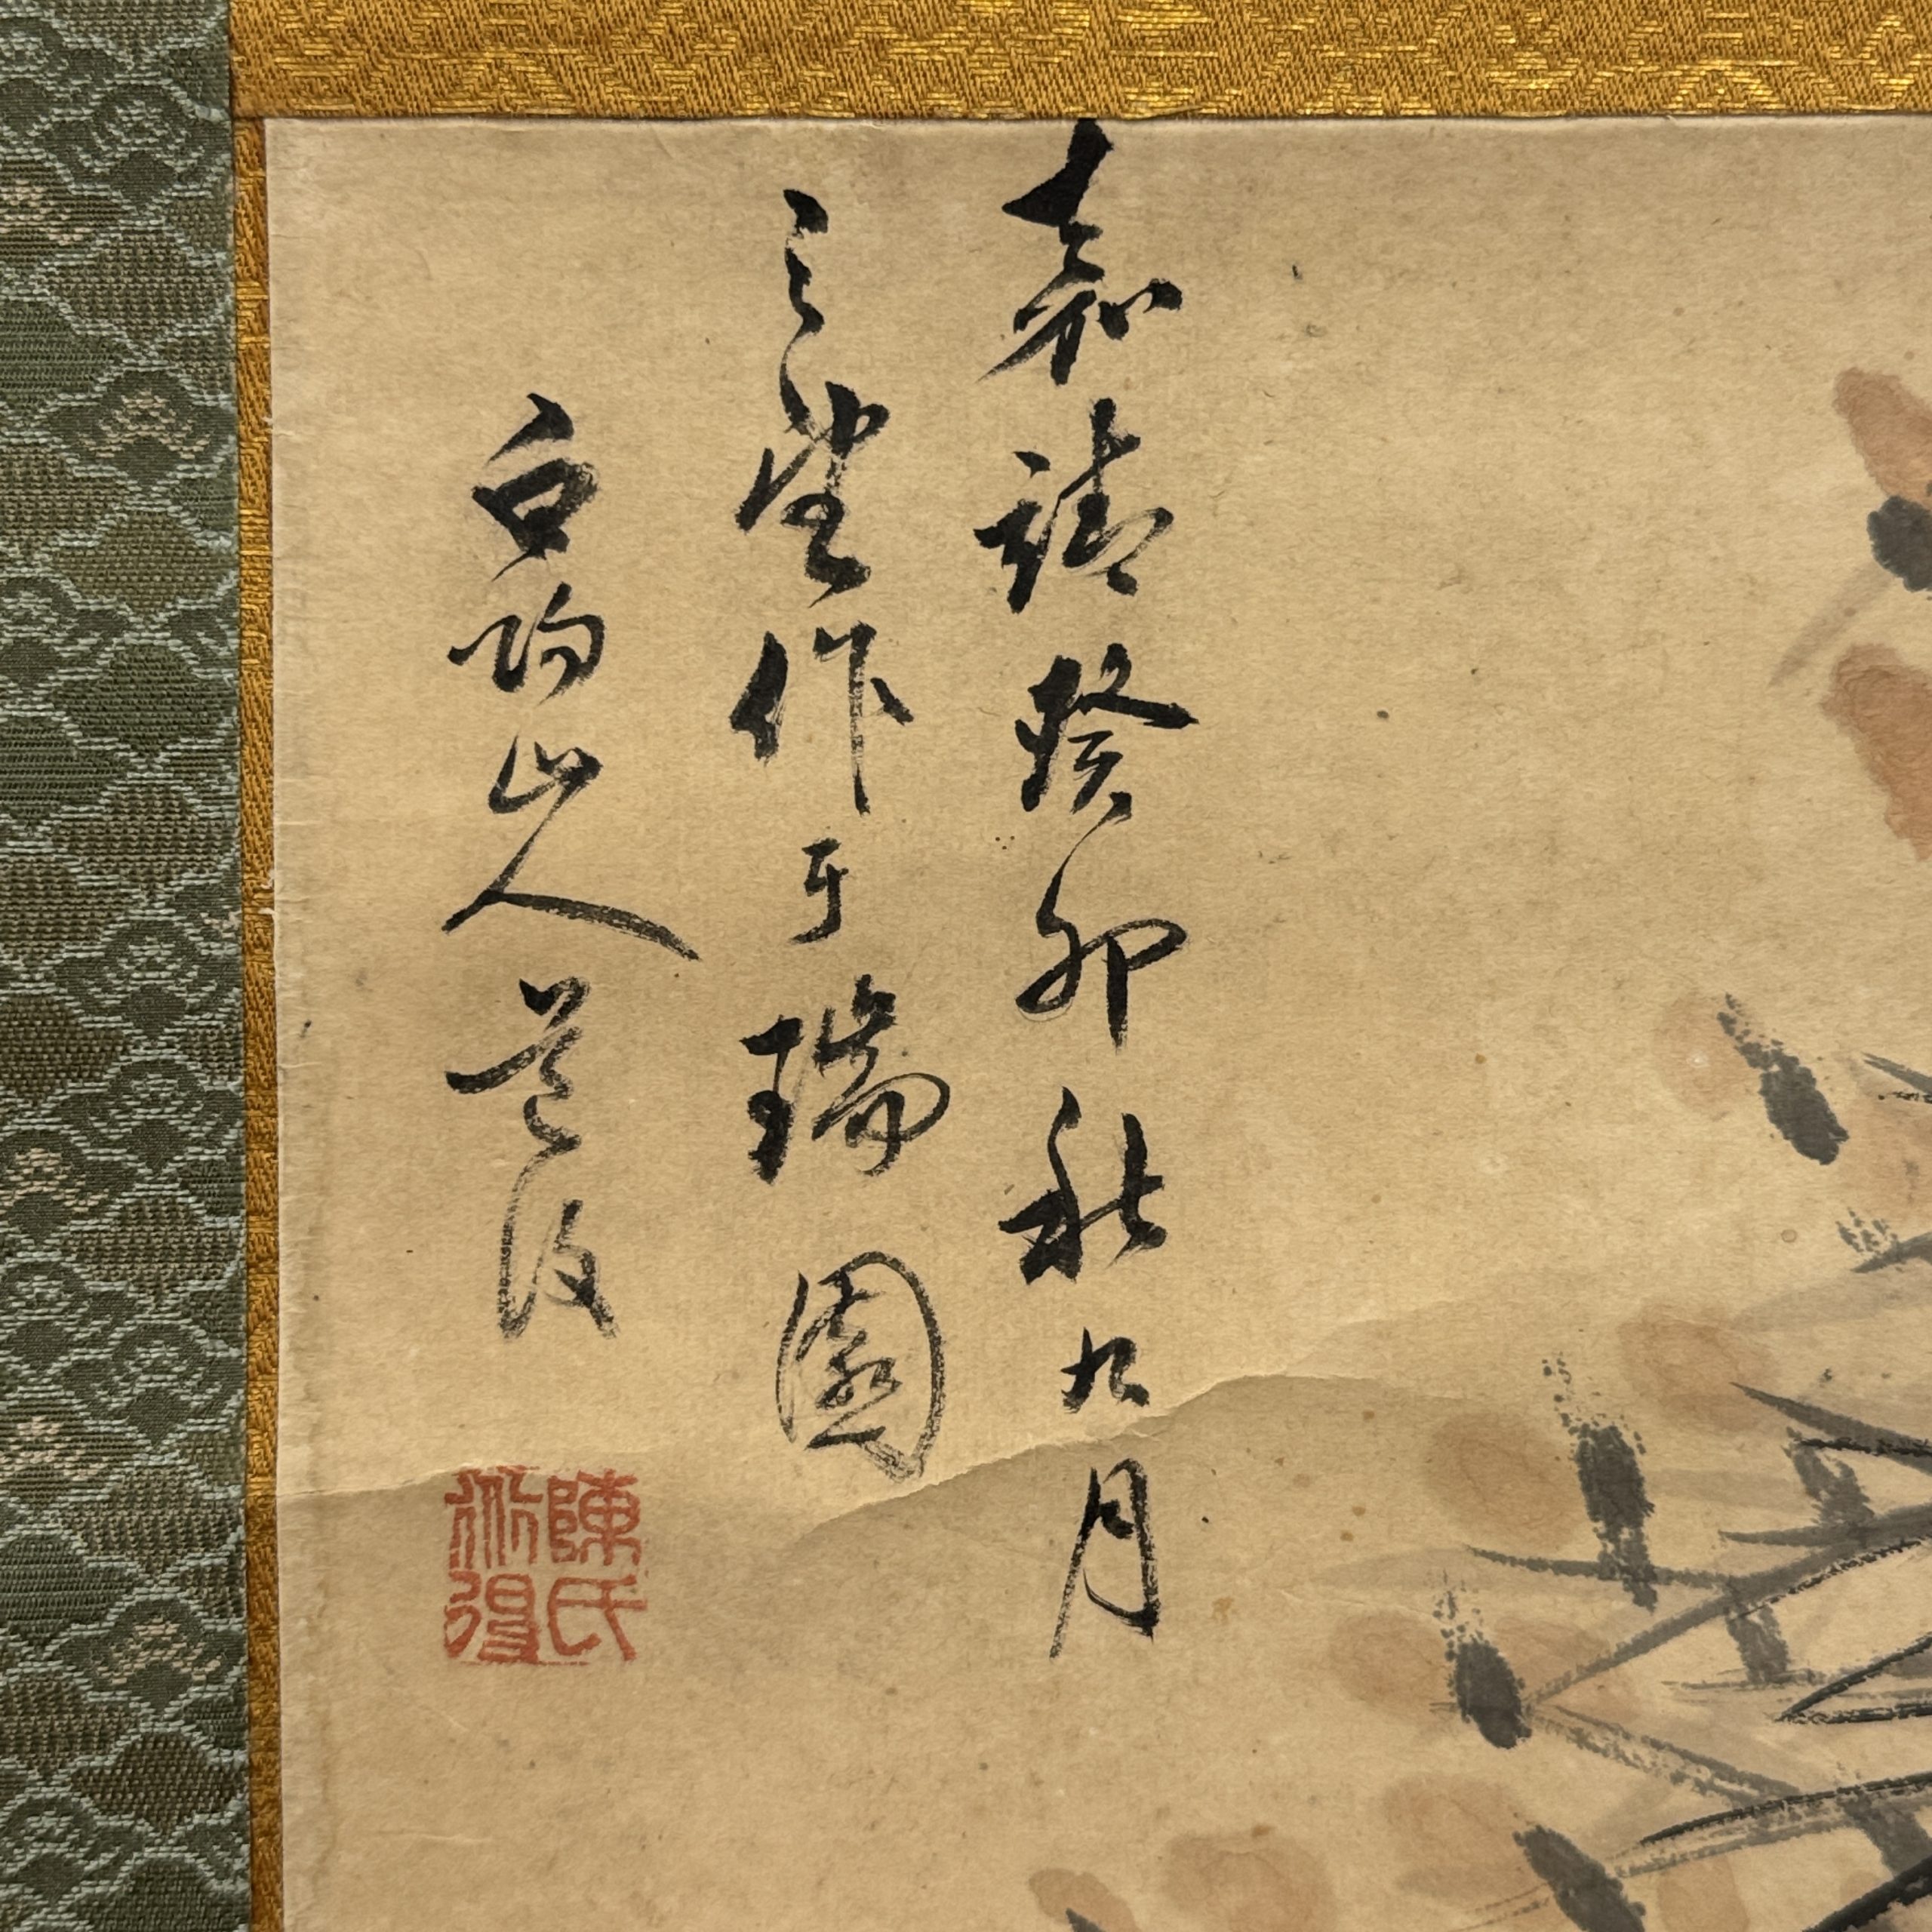 嘉靖癸卯秋九月
之望作于瑞園
白陽山人道復
陳氏道復